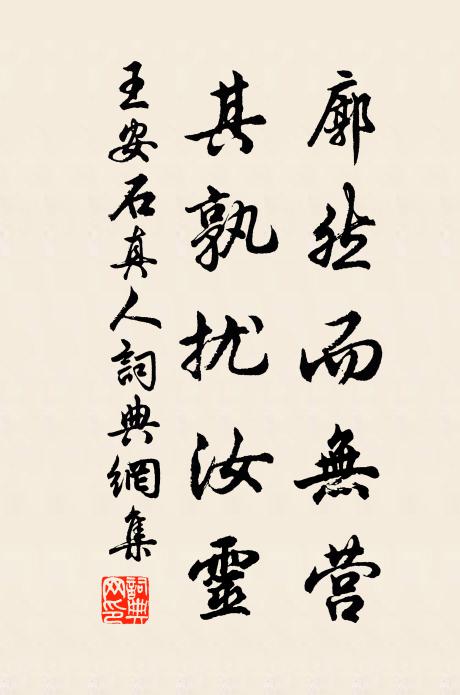 廓然而無营
其孰扰汝靈
王安石真人詞典網集
詞典網印